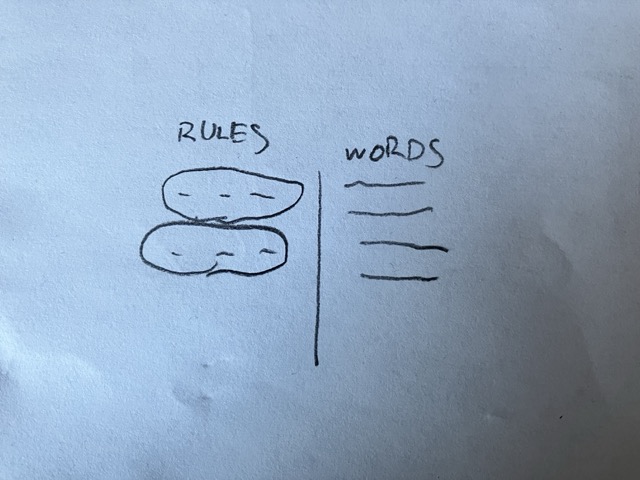 RULES
WORDS